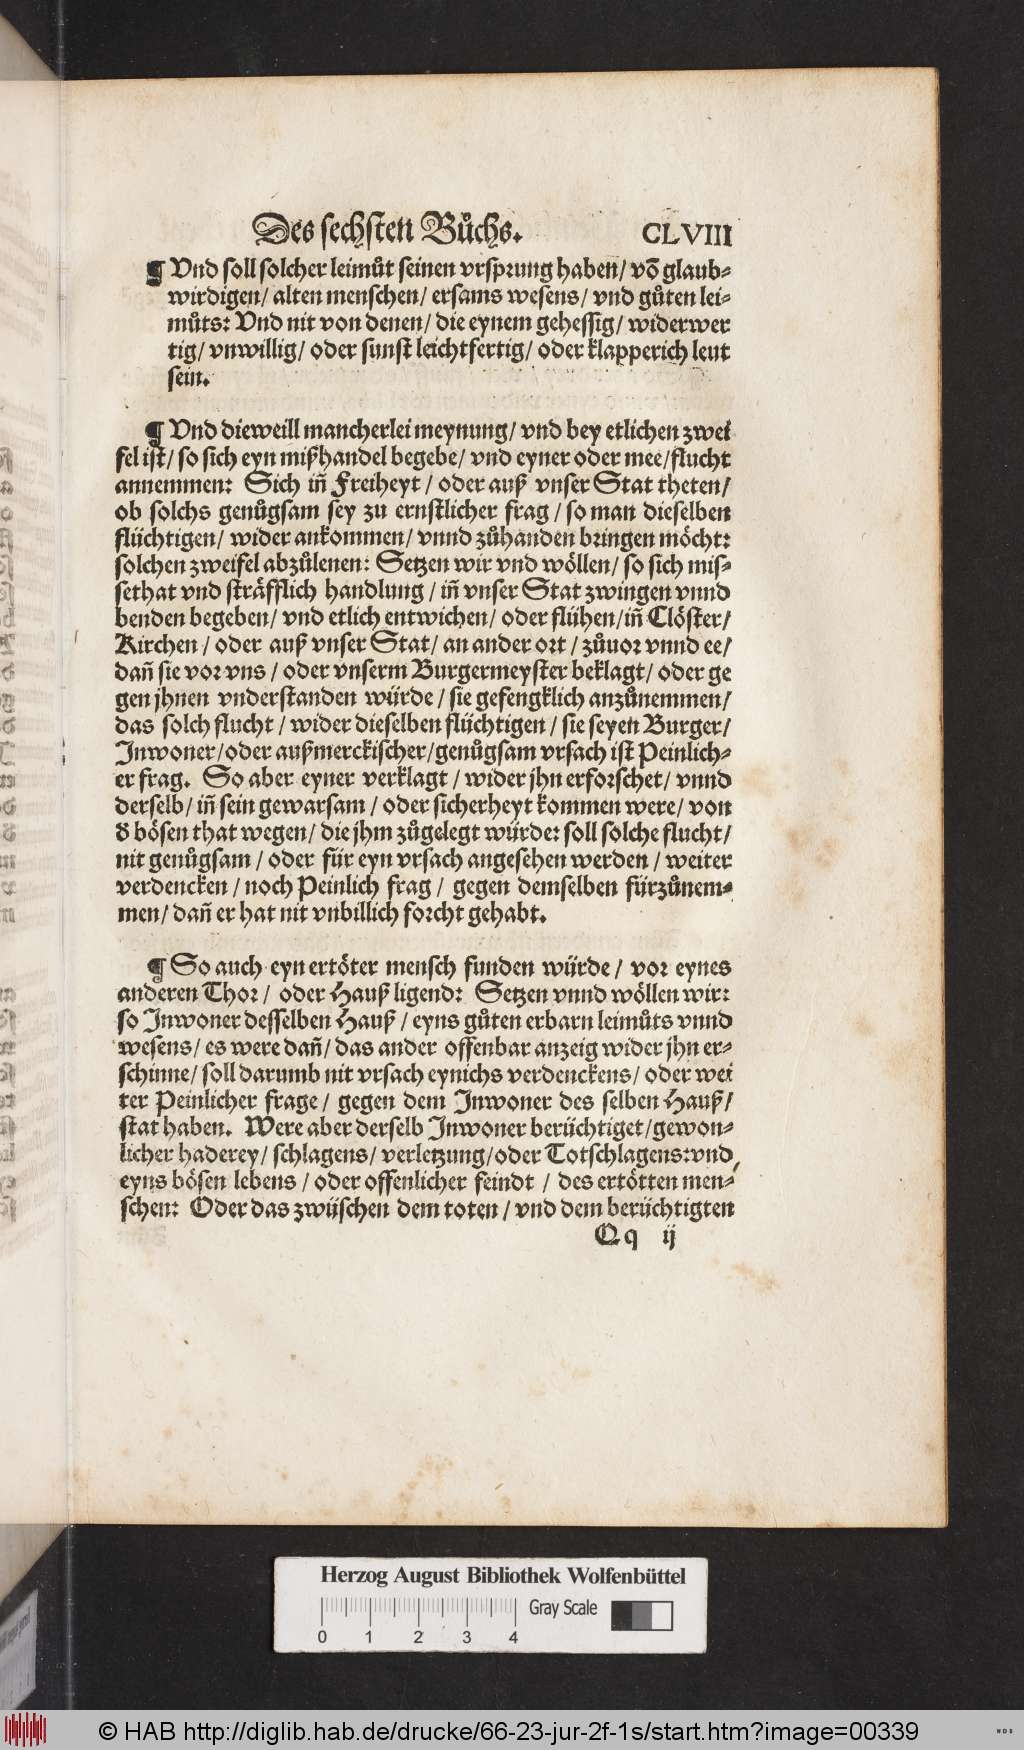 Des sechsten Bůchs. CLVIII
¶ Vnd soll solcher leimůt seinen vrsprung haben/ võ glaub⸗
wirdigen/ alten menschen/ ersams wesens/ vnd gůten lei⸗
můts: Vnd nit von denen/ die eynem gehessig/ widerwer
tig/ vnwillig/ oder sunst leichtfertig/ oder klapperich leut
sein.
¶ Vnd dieweill mancherlei meynung/ vnd bey etlichen zwei
fel ist/ so sich eyn mißhandel begebe/ vnd eyner oder mee/ flucht
annemmen: Sich iñ Freiheyt/ oder auß vnser Stat theten/
ob solchs genůgsam sey zu ernstlicher frag/ so man dieselben
flüchtigen/ wider ankommen/ vnnd zůhanden bringen möcht:
solchen zweifel abzůlenen: Setzen wir vnd wöllen/ so sich mis⸗
sethat vnd sträfflich handlung/ iñ vnser Stat zwingen vnnd
benden begeben/ vnd etlich entwichen/ oder flühen/ iñ Clöster/
Kirchen/ oder auß vnser Stat/ an ander ort/ zůuor vnnd ee/
dañ sie vor vns/ oder vnserm Burgermeyster beklagt/ oder ge
gen jhnen vnderstanden würde/ sie gefengklich anzůnemmen/
das solch flucht/ wider dieselben flüchtigen/ sie seyen Burger/
Inwoner/ oder außmerckischer/ genůgsam vrsach ist Peinlich⸗
er frag. So aber eyner verklagt/ wider jhn erforschet/ vnnd
derselb/ iñ sein gewarsam/ oder sicherheyt kommen were/ von
d̕ bösen that wegen/ die jhm zůgelegt würde: soll solche flucht/
nit genůgsam/ oder für eyn vrsach angesehen werden/ weiter
verdencken/ noch Peinlich frag/ gegen demselben fürzůnem⸗
men/ dañ er hat nit vnbillich forcht gehabt.
¶ So auch eyn ertöter mensch funden würde/ vor eynes
anderen Thor/ oder Hauß ligend: Setzen vnnd wöllen wir:
so Inwoner desselben Hauß/ eyns gůten erbarn leimůts vnnd
wesens/ es were dañ/ das ander offenbar anzeig wider jhn er⸗
schinne/ soll darumb nit vrsach eynichs verdenckens/ oder wei
ter Peinlicher frage/ gegen dem Inwoner des selben Hauß/
stat haben. Were aber derselb Inwoner berüchtiget/ gewon⸗
licher haderey/ schlagens/ verletzung/ oder Totschlagens: vnd
eyns bösen lebens/ oder offenlicher feindt/ des ertötten men⸗
schen: Oder das zwüschen dem toten/ vnd dem berüchtigten
Qq ij
Herzog August Bibliothek Wolfenbüttel
Gray Scale
0 1 2 3 4
© HAB http://diglib.hab.de/drucke/66-23-jur-2f-1s/start.htm?image=00339